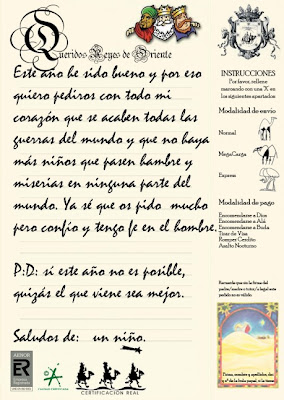 Queridos Reyes de Oriente
Este año he sido bueno y por eso
quiero pediros con todo mi
corazón que se acaben todas las
guerras del mundo y que no haya
más niños que pasen hambre y
miserias en ninguna parte del
mundo. Ya sé que os pido mucho
pero confío y tengo fe en el hombre.
P:D: si este año no es posible,
quizás el que viene sea mejor.
Saludos de: un niño.
CERTIFICACIÓN REAL
AENOR
ER
INSTRUCCIONES
Por favor, rellene
marcando con una X en
los siguientes apartados
Modalidad de envío
Normal
MegaCarga
Express
Modalidad de pago
Encomendarse a Dios
Encomendarse a Alá
Encomendarse a Buda
Tirar de Visa
Romper Cerdito
Asalto Nocturno
Recuerda que sin la firma del
pedido no es válido.